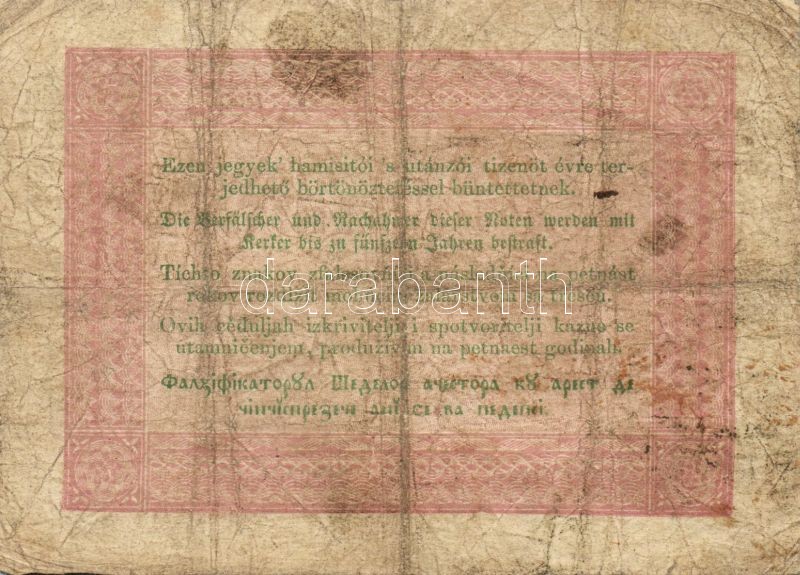 Ezen jegyek' hamisitói 's utánzói tizenöt évre ter-
jedhető börtönöztetéssel büntettetnek.
Die Verfälscher und Nachahmer dieser Noten werden mit
Kerker bis zu fünfzehn Jahren bestraft.
Tichto znakov a petnást
rokov
darabanth
Ovih céduljah izkrivitelji i spotvoritelji kazne se
utamničenjem, produživim na petnaest godinah.
Фалзіфікаторꙋл Шеделор ачестора кꙋ арест де